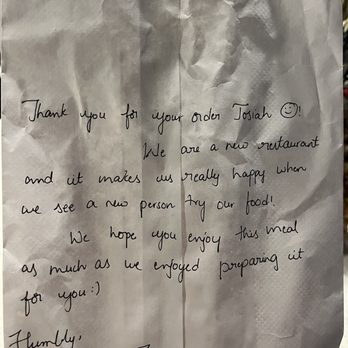 Thank you for your order Josiah ☺!
We are a new restaurant
and it makes us really happy when
we see a new person try our food!
We hope you enjoy this meal
as much as we enjoyed preparing it
for you:)
Humbly,